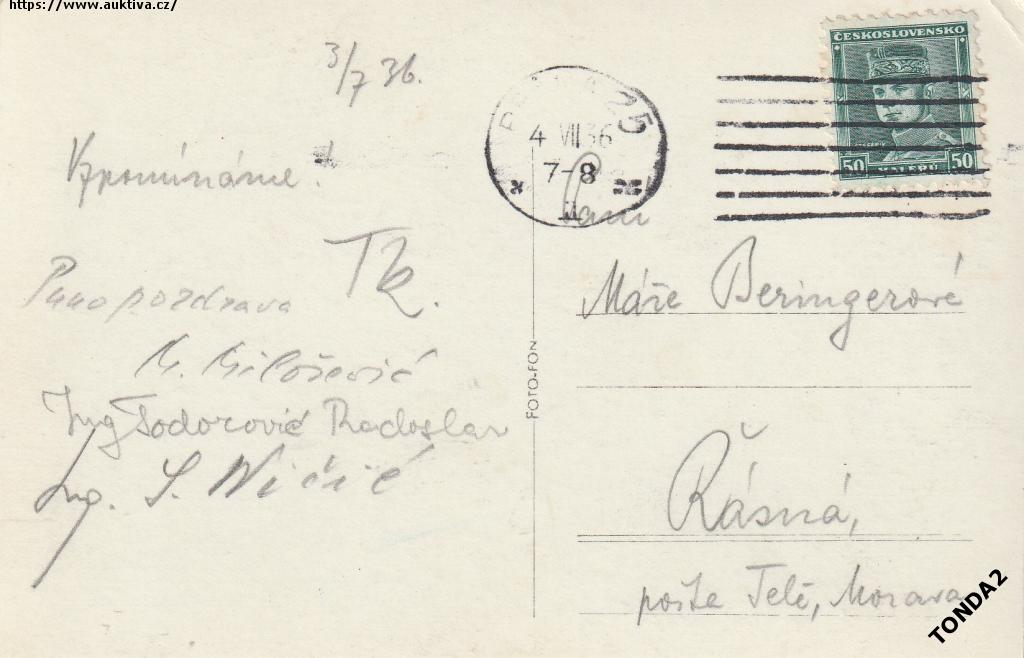 https://www.auktiva.cz/
3/7 36.
Vzpomínáme.
Tk.
Puno pozdrava
M. Milošević
Ing Todorović Radoslav
Ing. S.
PRAHA 25
4 VII 36
7-8
II
ČESKOSLOVENSKO
50 HALÉŘŮ 50
Paní
Máře Beringerové
Řásná,
pošta Telč, Morava
FOTO-FON
TONDA2